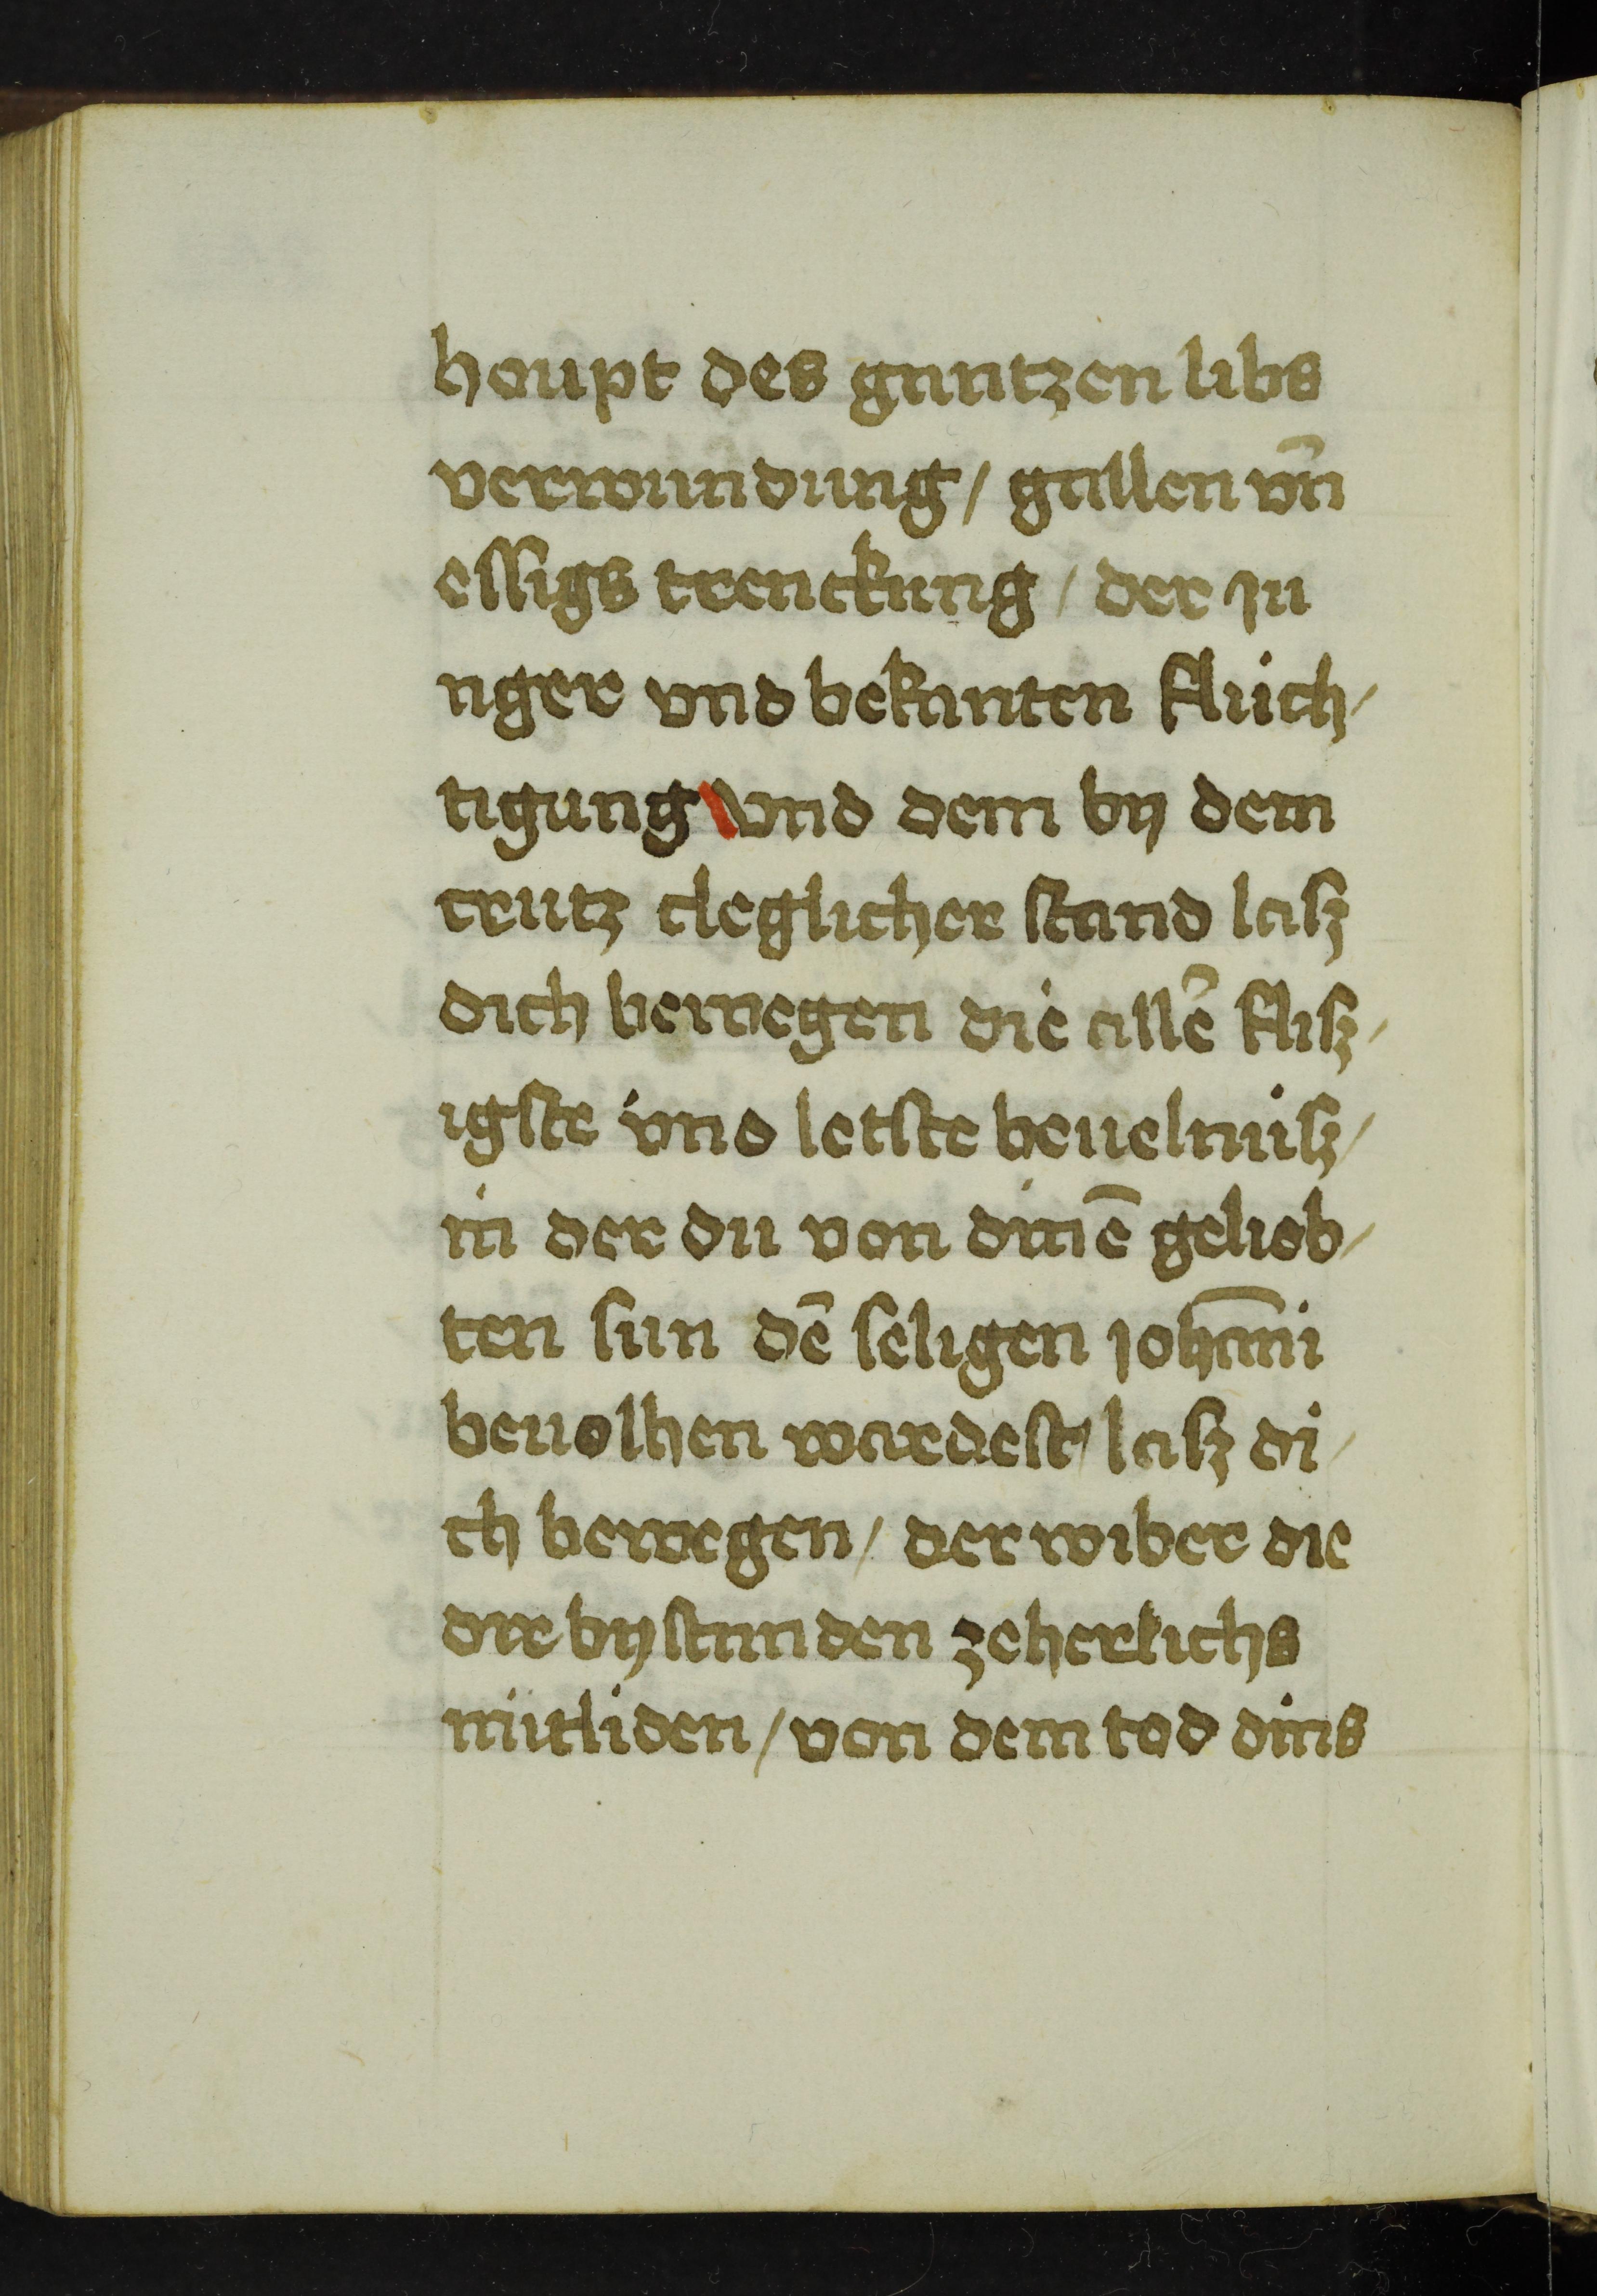 houpt des gantzen libs
verwundung/ gallen vn̄
eſſigs trenckung/ der iu
nger vnd bekanten fluch/
tigung vnd dem by dem
crutz cleglicher ſtand laſz
dich bewegen die allē fliſz/
igſte vnd letſte beuelnuſz/
in der du von dinē gelieb/
ten ſun dē ſeligen ioha̅ni
beuolhen wardeſt/ laſz di/
ch bewegen/ der wiber die
dir byſtunden zeherlichs
mitliden/ von dem tod dins